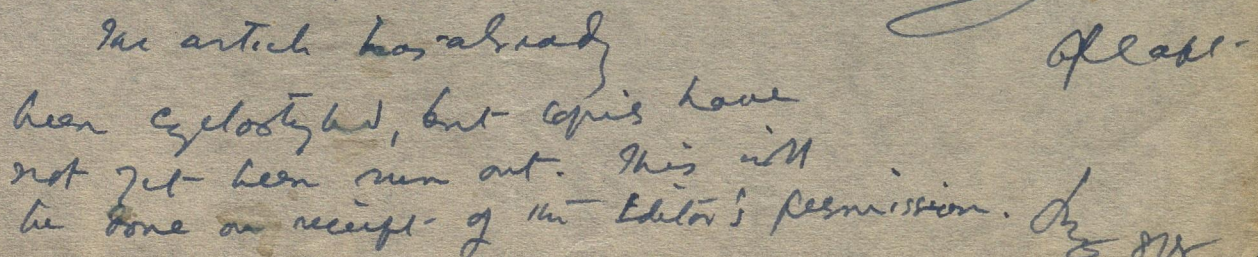 The article has already
been cyclostyled, but copies have
not yet been run out. This will
be done on receipt of the Editor's permission.